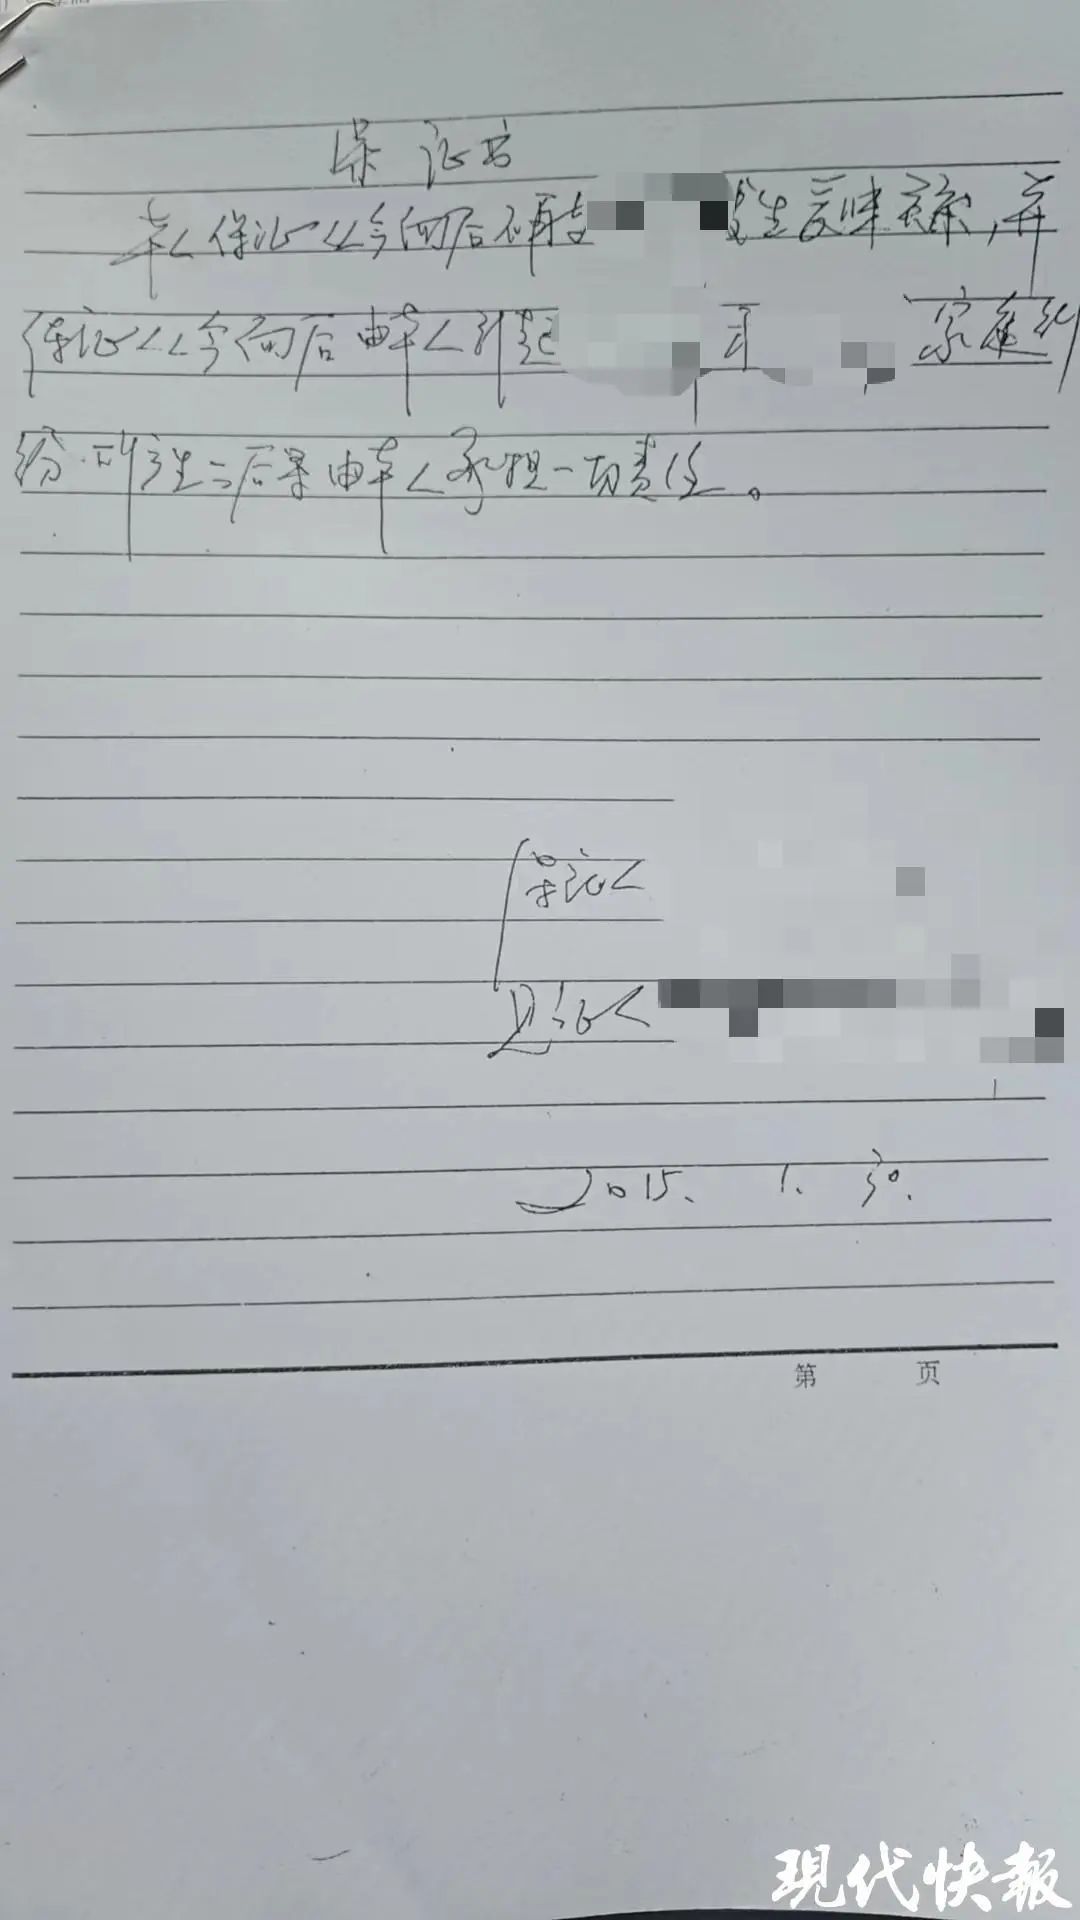 保证书
本人保证从今向后不再与 发生暧昧关系,并
保证从今向后由本人引起 家庭纠
纷.所产生之后果由本人承担一切责任。
保证人
见证人
2015. 1. 30.
第 页
现代快報